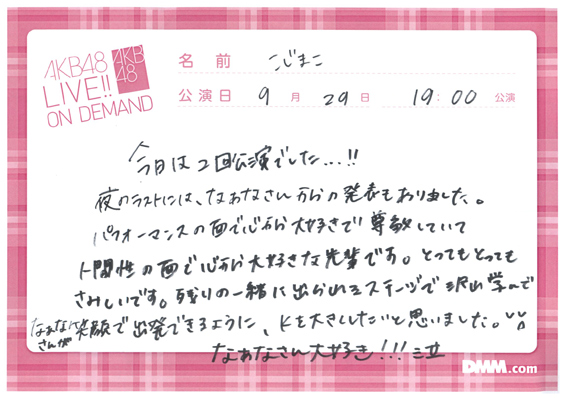 AKB48
LIVE!!
ON DEMAND
AKB
48
名前 こじまこ
公演日 9月29日 19:00公演
今日は2回公演でした...!!
夜のラストには、なぁなさんからの発表もありました。
パフォーマンスの面で心から大好きで尊敬していて
人間性の面で心から大好きな先輩です。とってもとっても
さみしいです。残りの一緒に出られるステージで沢山学んで
なぁなさんが笑顔で出発できるように、 を大きくしたいと思いました。
なぁなさん大好き!!!
DMM.com